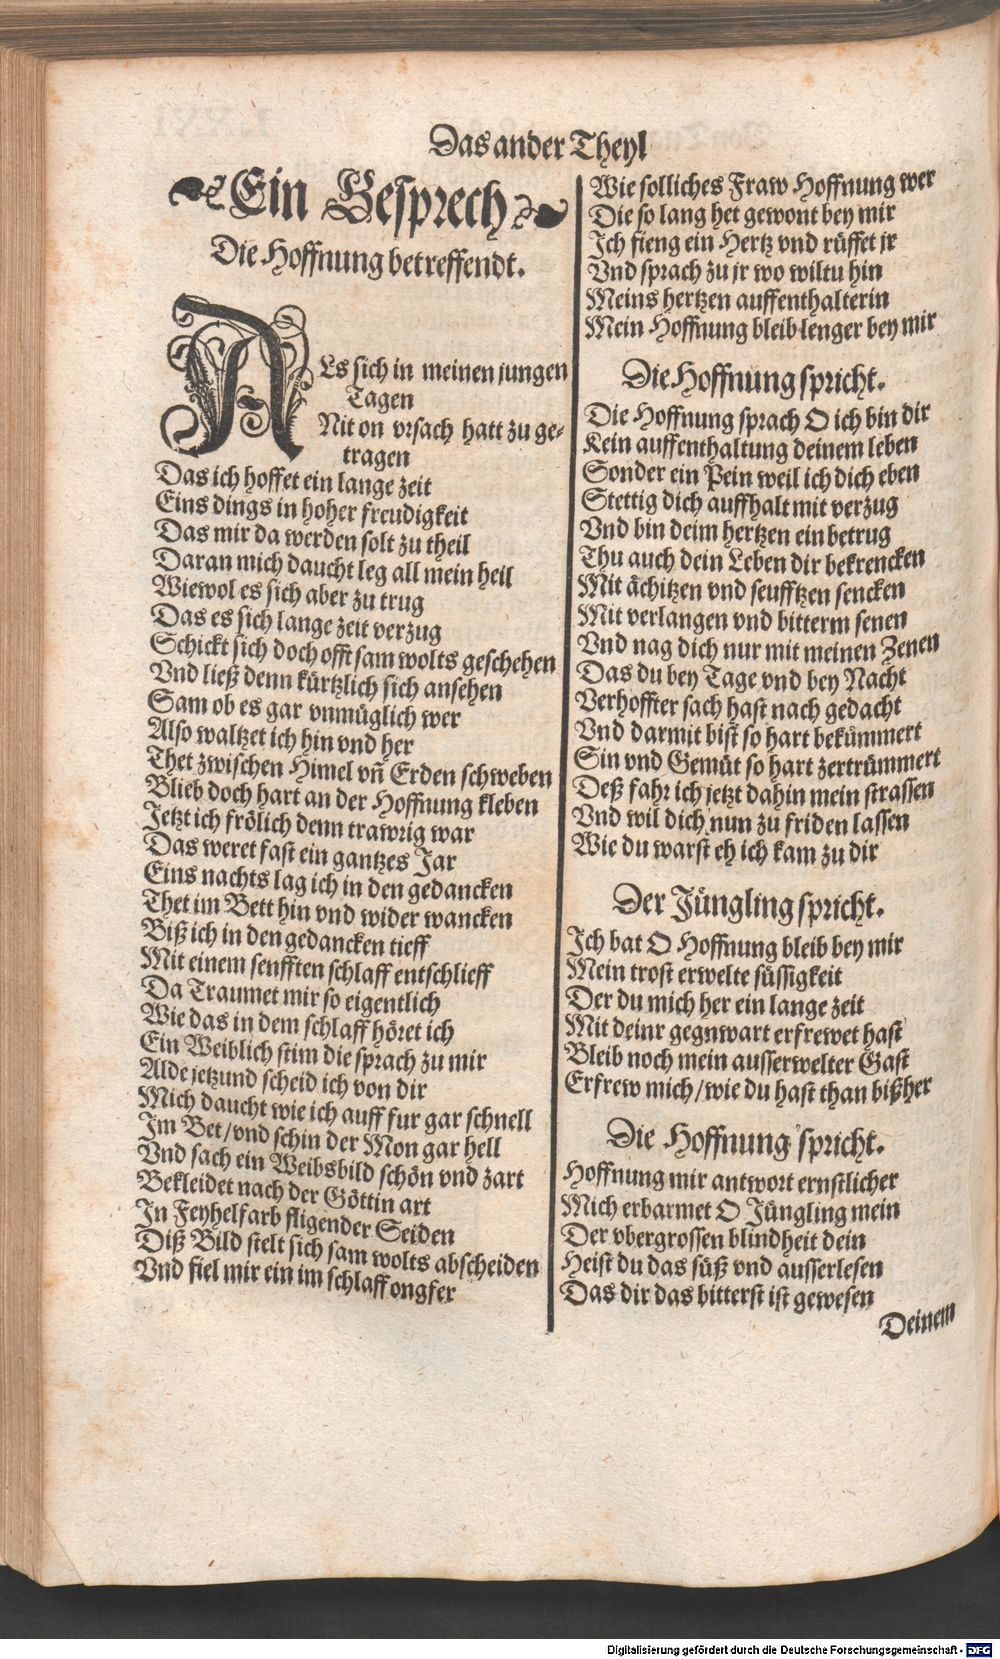 Das ander Theyl
Ein Gesprech
Die Hoffnung betreffendt.
ALs sich in meinen jungen
Tagen
Nit on vrsach hatt zu ge-
tragen
Das ich hoffet ein lange zeit
Eins dings in hoher freudigkeit
Das mir da werden solt zu theil
Daran mich daucht leg all mein heil
Wiewol es sich aber zu trug
Das es sich lange zeit verzug
Schickt sich doch offt sam wolts geschehen
Vnd ließ denn kürtzlich sich ansehen
Sam ob es gar vnmüglich wer
Also waltzet ich hin vnd her
Thet zwischen Himel vñ Erden schweben
Blieb doch hart an der Hoffnung kleben
Jetzt ich frölich denn trawrig war
Das weret fast ein gantzes Jar
Eins nachts lag ich in den gedancken
Thet im Bett hin vnd wider wancken
Biß ich in den gedancken tieff
Mit einem senfften schlaff entschlieff
Da Traumet mir so eigentlich
Wie das in dem schlaff höret ich
Ein Weiblich stim die sprach zu mir
Alde jetzund scheid ich von dir
Mich daucht wie ich auff fur gar schnell
Im Bet/vnd schin der Mon gar hell
Vnd sach ein Weibsbild schön vnd zart
Bekleidet nach der Göttin art
In Feyhelfarb fligender Seiden
Diß Bild stelt sich sam wolts abscheiden
Vnd fiel mir ein im schlaff ongfer
Wie solliches Fraw Hoffnung wer
Die so lang het gewont bey mir
Ich fieng ein Hertz vnd rüffet jr
Vnd sprach zu jr wo wiltu hin
Meins hertzen auffenthalterin
Mein Hoffnung bleib lenger bey mir
Die Hoffnung spricht.
Die Hoffnung sprach O ich bin dir
Kein auffenthaltung deinem leben
Sonder ein Pein weil ich dich eben
Stettig dich auffhalt mit verzug
Vnd bin deim hertzen ein betrug
Thu auch dein Leben dir bekrencken
Mit ächitzen vnd seufftzen sencken
Mit verlangen vnd bitterm senen
Vnd nag dich nur mit meinen Zenen
Das du bey Tage vnd bey Nacht
Verhoffter sach hast nach gedacht
Vnd darmit bist so hart bekümmert
Sin vnd Gemüt so hart zertrümmert
Deß fahr ich jetzt dahin mein strassen
Vnd wil dich nun zu friden lassen
Wie du warst eh ich kam zu dir
Der Jüngling spricht.
Ich bat O Hoffnung bleib bey mir
Mein trost erwelte süssigkeit
Der du mich her ein lange zeit
Mit deinr gegnwart erfrewet hast
Bleib noch mein ausserwelter Gast
Erfrew mich/wie du hast than bißher
Die Hoffnung spricht.
Hoffnung mir antwort ernstlicher
Mich erbarmet O Jüngling mein
Der vbergrossen blindheit dein
Heist du das süß vnd ausserlesen
Das dir das bitterst ist gewesen
Deinem
Digitalisierung gefördert durch die Deutsche Forschungsgemeinschaft - DFG